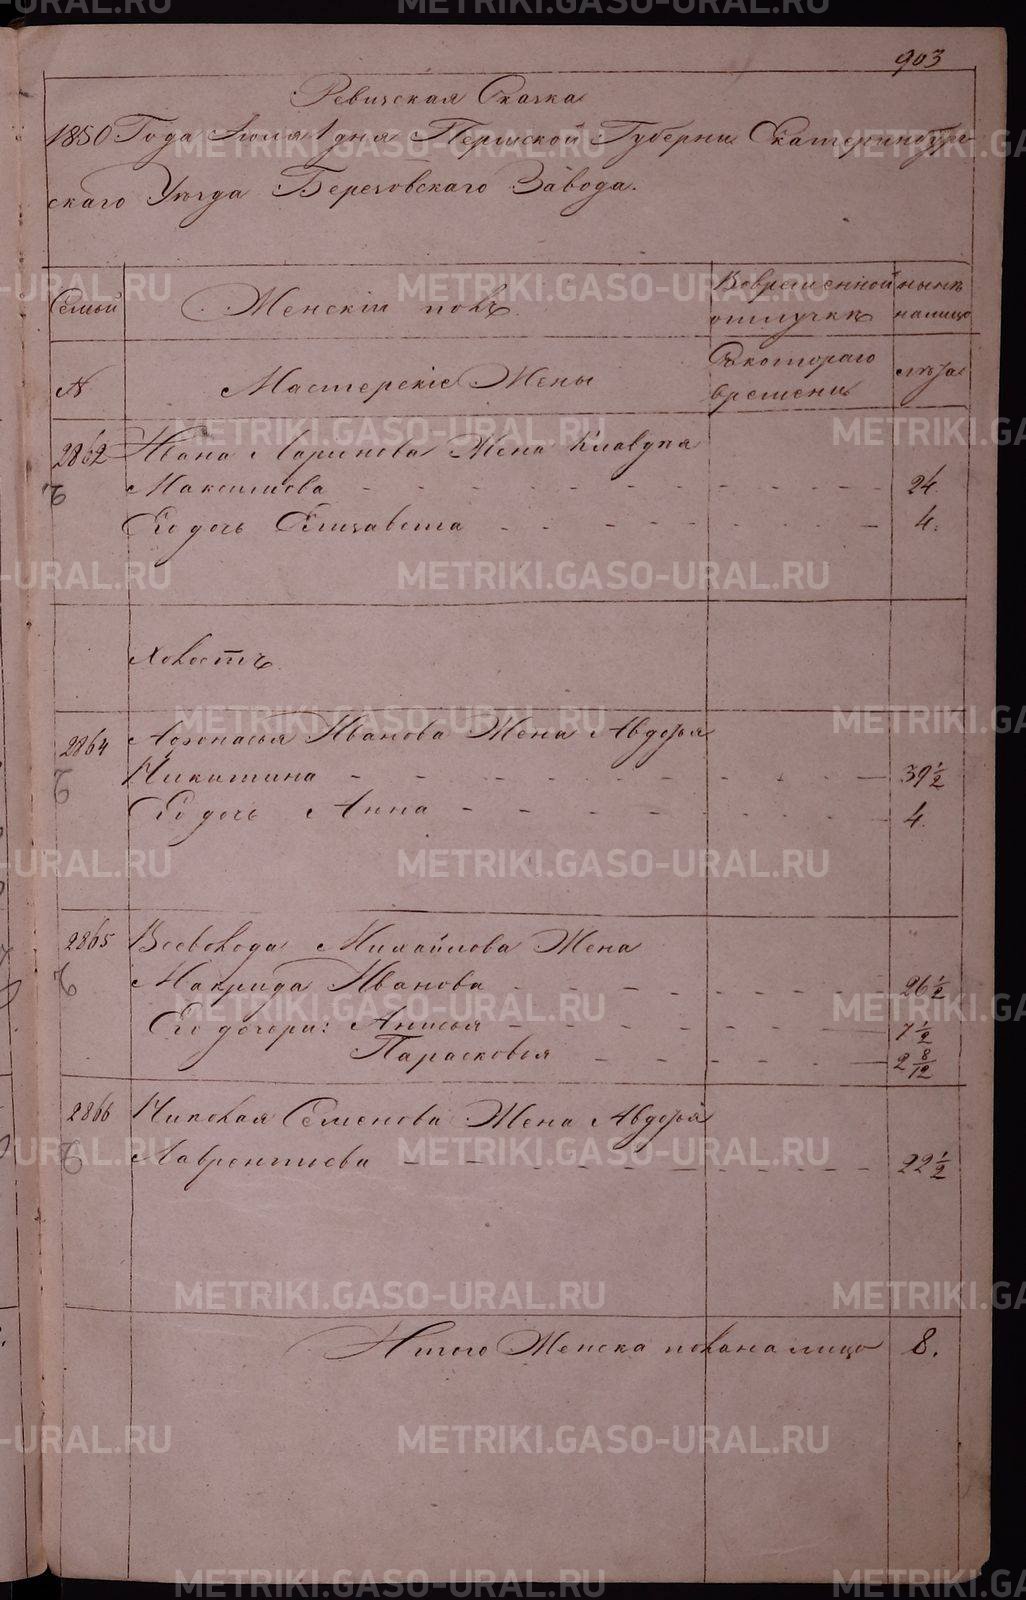 903
Ревизская Сказка
1850 Года Июля 1 дня Пермской Губерни Екатеринбург-
скаго Уѣзда Березовскаго Завода.
Семьи Женскій полъ Вовременной нынѣ
отлучкѣ налицо
№ Мастерскіе Жены Съкотораго лѣта
времени
2862 Ивана Ларионова Жена Клавдия
Максимова 24.
Его дочь Елизавета 4.
Холостъ
2864 Афонасья Иванова Жена Авдотья
Никитина 39 1/2
Его дочь Анна 4.
2865 Всеволода Михайлова Жена
Макрида Иванова 26 1/2
Его дочери: Анисья 7 1/2
Парасковья 2 8/12
2866 Николая Семенова Жена Авдотья
Лаврентиева 22 1/2
Итого Женска пола на лицо 8.
METRIKI.GASO-URAL.RU